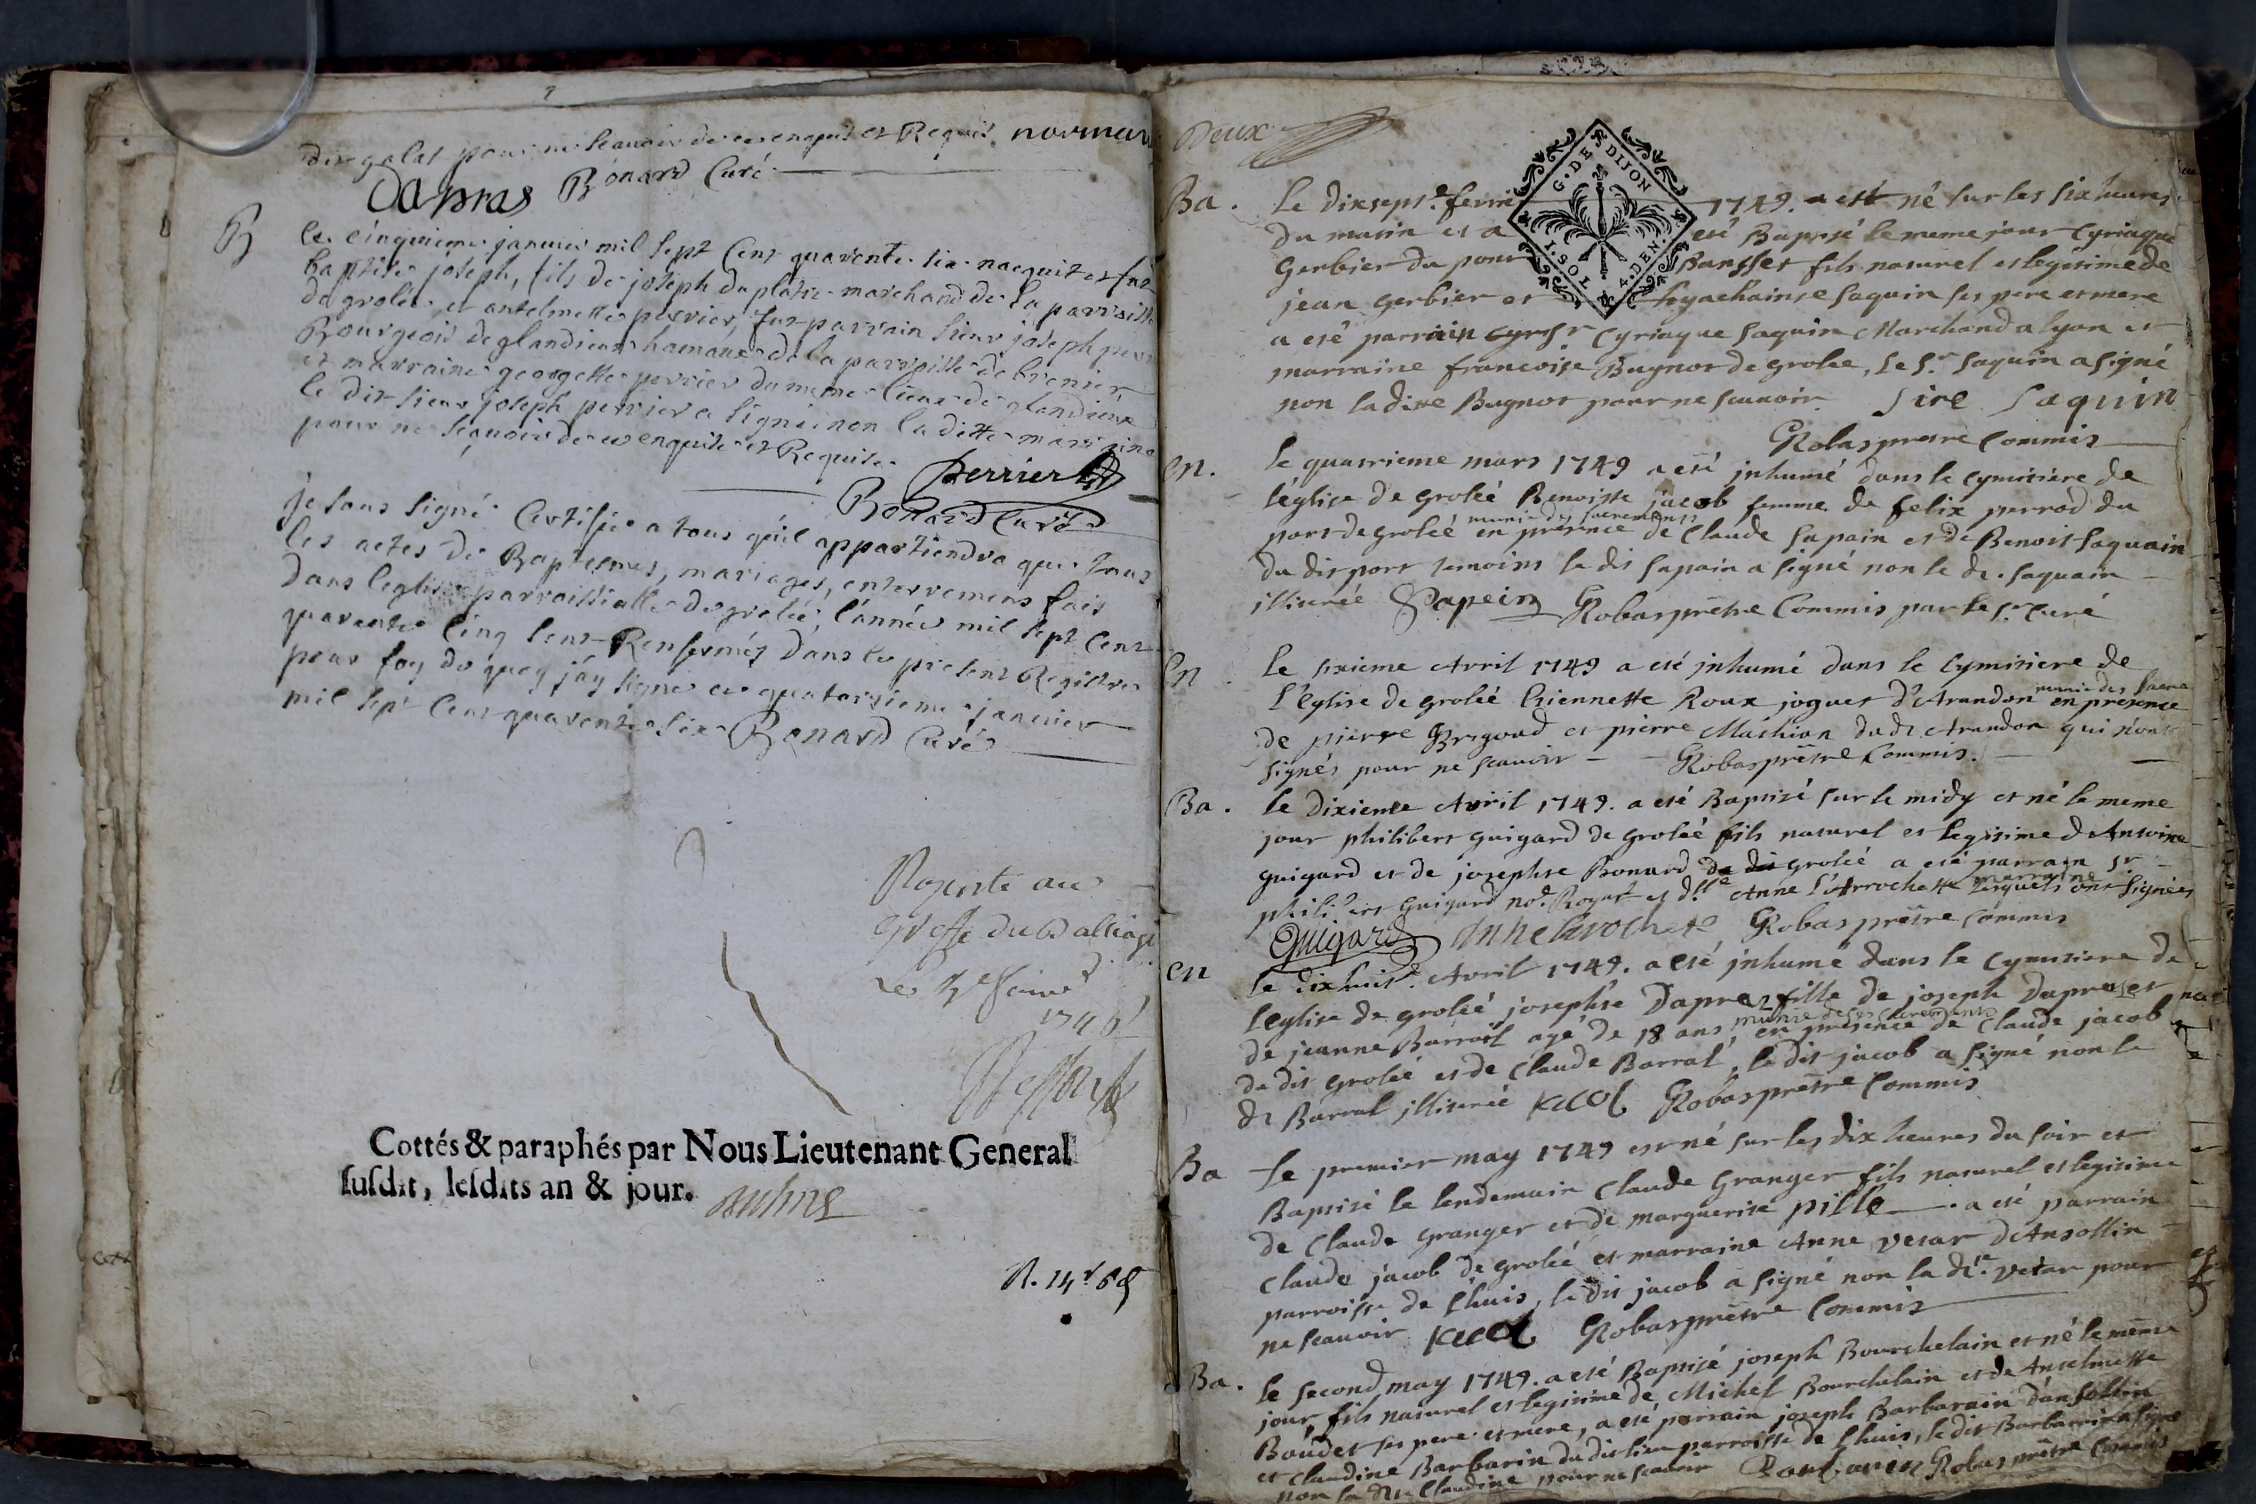 dit galat pour ne sçavoir de ce enquit et Requis. norman
Dapras Bonard Curé
B le cinquieme janvier mil sept cent quarente six naequit et fut
baptisé joseph, fils de joseph du platre marchand de la parroisse
de grolée et antelmette perrier, fut parrain sieur joseph perrier
Bourgeois de glandieu hameau de la parroisse de brenier
et marraine georgette perrier du meme lieu de glandieu
le dit sieur joseph perrier a signé non laditte marraine
pour ne sçavoir de ce enquise et Requise.
perrier
Bonard Curé
je sous signé Certifie a tous qu'il appartiendra que tous
les actes de Baptesmes, mariages, enterremens fais
dans l'eglise parroissialle de grolée, l'année mil sept cent
quarente cinq sont Renfermés dans le present Registre
pour foy de quoy j'ay signé ce quatorzieme janvier
mil sept cent quarente six Bonard Curé
greffe du Balliage
1746
Cottés & paraphés par Nous Lieutenant General
susdit, lesdits an & jour.
Deux
G. DE DIJON
I. SOL 4. DEN.
Ba. Le dixsept.e fevrié 1749. a esté né sur les six heures
du matin et a eté Baptisé le meme jour Cyriaque
Gerbier du port Bansset fils naturel et legitime de
jean Gerbier et hyachainte Saquin ses pere et mere
a eté parrain Sr Cyriaque Saquin Marchand a lyon et
marraine francoise Bugnot de grolée, le Sr Saquin a signé
non la dite Bugnot pour ne scauoir Sire Saquin
Robas pretre Commis
En. le quatrieme mars 1749 a eté jnhumé dans le cymitiere de
l'église de groléé Benoiste jacob femme de felix perrod du
port de groléé munie des sacrements en presence de Claude Sapain et de Benoit Saquain
du dit port temoins le dit Sapain a signé non le dt. Saquain
illiteréé Sapein Robas prêtre Commis par le Sr Curé
En le sixieme Avril 1749 a eté jnhumé dans le Cymitiere de
L'Eglise de groléé Etiennette Roux joguet d'Arandon munie des sacre en presence
de pierre Brigoud et pierre Mathian dudt Arandon qui n'ont
signés pour ne scauoir Robas prêtre Commis.
Ba. le dixieme Avril 1749. a eté Baptisé sur le midy et né le meme
jour philibert guigard de groléé fils naturel et legitime d'Antoine
guigard et de josephte Bonard de groléé a eté parrain Sr
philibert Guigard nore. Royal et dlle Anne L'Arrochette marraine lesquels ont signées
Guigard Anne larochete Robas prêtre Commis
en le dixhuit.e Avril 1749. a eté jnhumé dans le cymitiere de
L'eglise de groléé josephte Dapras fille de joseph Dapras et
de jeanne Barral agé de 18 ans munie de ses sacrements en presence de Claude jacob
du dit groléé et de Claude Barral, le dit jacob a signé non le
dt Barral jlliteréé jacob Robas prêtre Commis
Ba Le premier may 1749 est né sur les dix heures du soir et
Baptisé le lendemain Claude Granger fils naturel et legitime
de Claude granger et de marguerite pille. a eté parrain
Claude jacob de groléé et marraine Anne vetar d'Ansollin
parroisse de Lhuis, le dit jacob a signé non la dte vetar pour
ne scauoir jacob Robas prêtre Commis
Ba. le second may 1749. a eté Baptisé joseph Bourchelain et né le même
jour fils naturel et legitime de Michel Bourchelain et de Antelmette
Boudet ses pere et mere, a eté parrain joseph Barbarain d'ansollin
et Claudine Barbarin du dit lieu parroisse de Lhuis, le dit Barbarin a signé
non la dte Claudine pour ne scauoir Barbarin Robas prêtre Commis